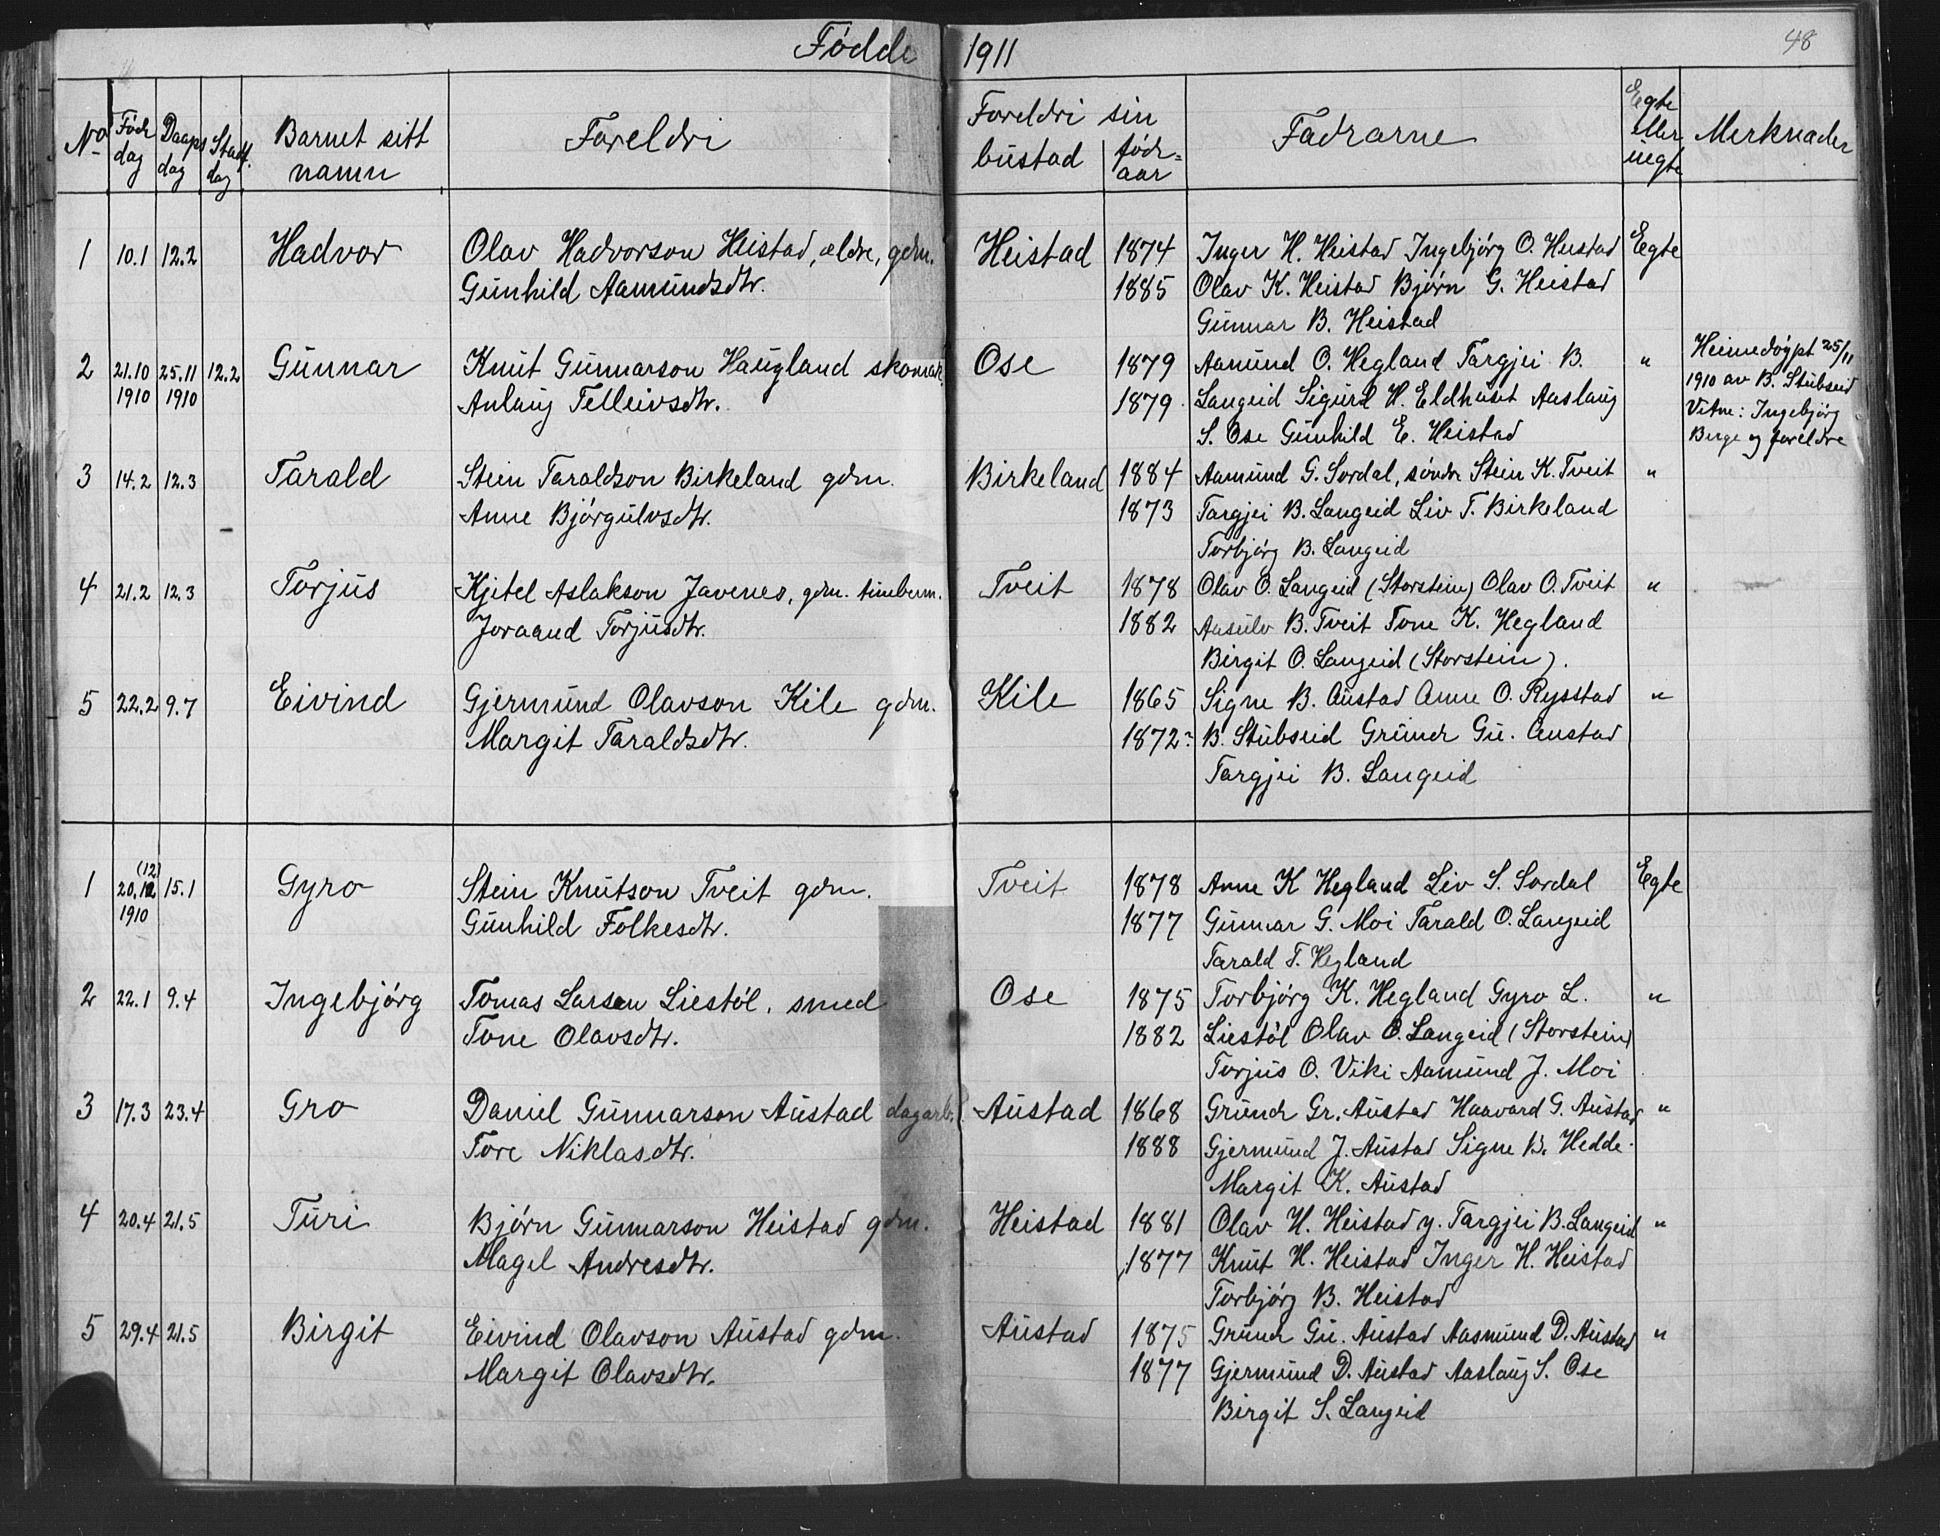 Fødde 1911
48
No Føde dag Daaps dag Stadf. dag Barnet sitt namn Foreldri Foreldri sin bustad fødeaar Fadrarne Egte eller uegte Merknader
1 10.1 12.2 Hadvor Olav Hadvorson Heistad, ældre, gdm. Heistad 1874 Inger H. Heistad Ingebjørg O. Heistad Egte
Gunhild Aamundsdtr. 1885 Olav K. Heistad Bjørn G. Heistad
Gunnar B. Heistad
2 21.10 25.11 12.2 Gunnar Knut Gunnarson Haugland skomak. Ose 1879 Aamund O. Hegland Targjei B. " Heimedøypt 25/11
1910 1910 Aslaug Telleivsdtr. 1879 Langeid Sigurd H. Eldhuset Aaslaug 1910 av B. Stubseid
S. Ose Gunhild E. Heistad Vitne: Ingebjørg
Berge og foreldre
3 14.2 12.3 Tarald Stein Taraldson Birkeland gdm. Birkeland 1884 Aamund G. Sordal, søndre Stein K. Tveit "
Anne Bjørgulvsdtr. 1873 Targjei B. Langeid Liv T. Birkeland
Torbjørg B. Langeid
4 21.2 12.3 Torjus Kjitel Aslakson Javenes, gdm. timberm. Tveit 1878 Olav O. Langeid (Storstein) Olav O. Tveit "
Joraand Torjusdtr. 1882 Aasulv B. Tveit Tone K. Hegland
Birgit O. Langeid (Storstein).
5 22.2 9.7 Eivind Gjermund Olavson Kile gdm. Kile 1865 Signe B. Austad Anne O. Rysstad "
Margit Taraldsdtr. 1872 B. Stubseid Grunde Gu. Austad
Targjei B. Langeid
1 (12) 20.12 15.1 Gyro Stein Knutson Tveit gdm. Tveit 1878 Anne K Hegland Liv S. Sordal Egte
1910 Gunhild Folkesdtr. 1877 Gunnar G. Moi Tarald O. Langeid
Tarald T. Hegland
2 22.1 9.4 Ingebjørg Tomas Larsen Liestøl, smed Ose 1875 Torbjørg K. Hegland Gyro L. "
Tone Olavsdtr. 1882 Liestøl Olav O. Langeid (Storstein)
Torjus O. Viki Aamund J. Moi
3 17.3 23.4 Gro Daniel Gunnarson Austad dagarb. Austad 1868 Grunde Gr. Austad Haavard G. Austad "
Tore Niklasdtr. 1888 Gjermund J. Austad Signe B. Hedde.
Margit K. Austad
4 20.4 21.5 Turi Bjørn Gunnarson Heistad gdm. Heistad 1881 Olav H. Heistad y. Targjei B. Langeid "
Magel Andresdtr. 1877 Knut H. Heistad Inger H. Heistad
Torbjørg B. Heistad
5 29.4 21.5 Birgit Eivind Olavson Austad gdm. Austad 1875 Grunde Gu. Austad Aasmund D. Austad "
Margit Olavsdtr. 1877 Gjermund D. Austad Aaslaug S. Ose
Birgit S. Langeid